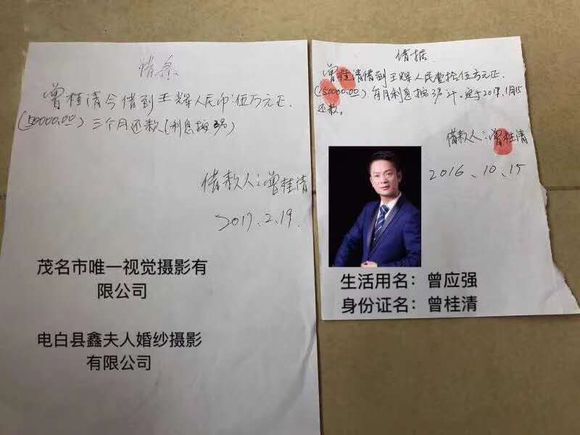 借条
曾桂清今借到王辉人民币伍万元正
(50000.00)三个月还款(利息按3分)
借款人:曾桂清
2017.2.19.
茂名市唯一视觉摄影有
限公司
电白县鑫夫人婚纱摄影
有限公司
借据
曾桂清借到王辉人民壹拾伍万元正
(150000.00)每月利息按3分计,定于2017.1月15
还款。
借款人:曾桂清
2016.10.15
生活用名:曾应强
身份证名:曾桂清